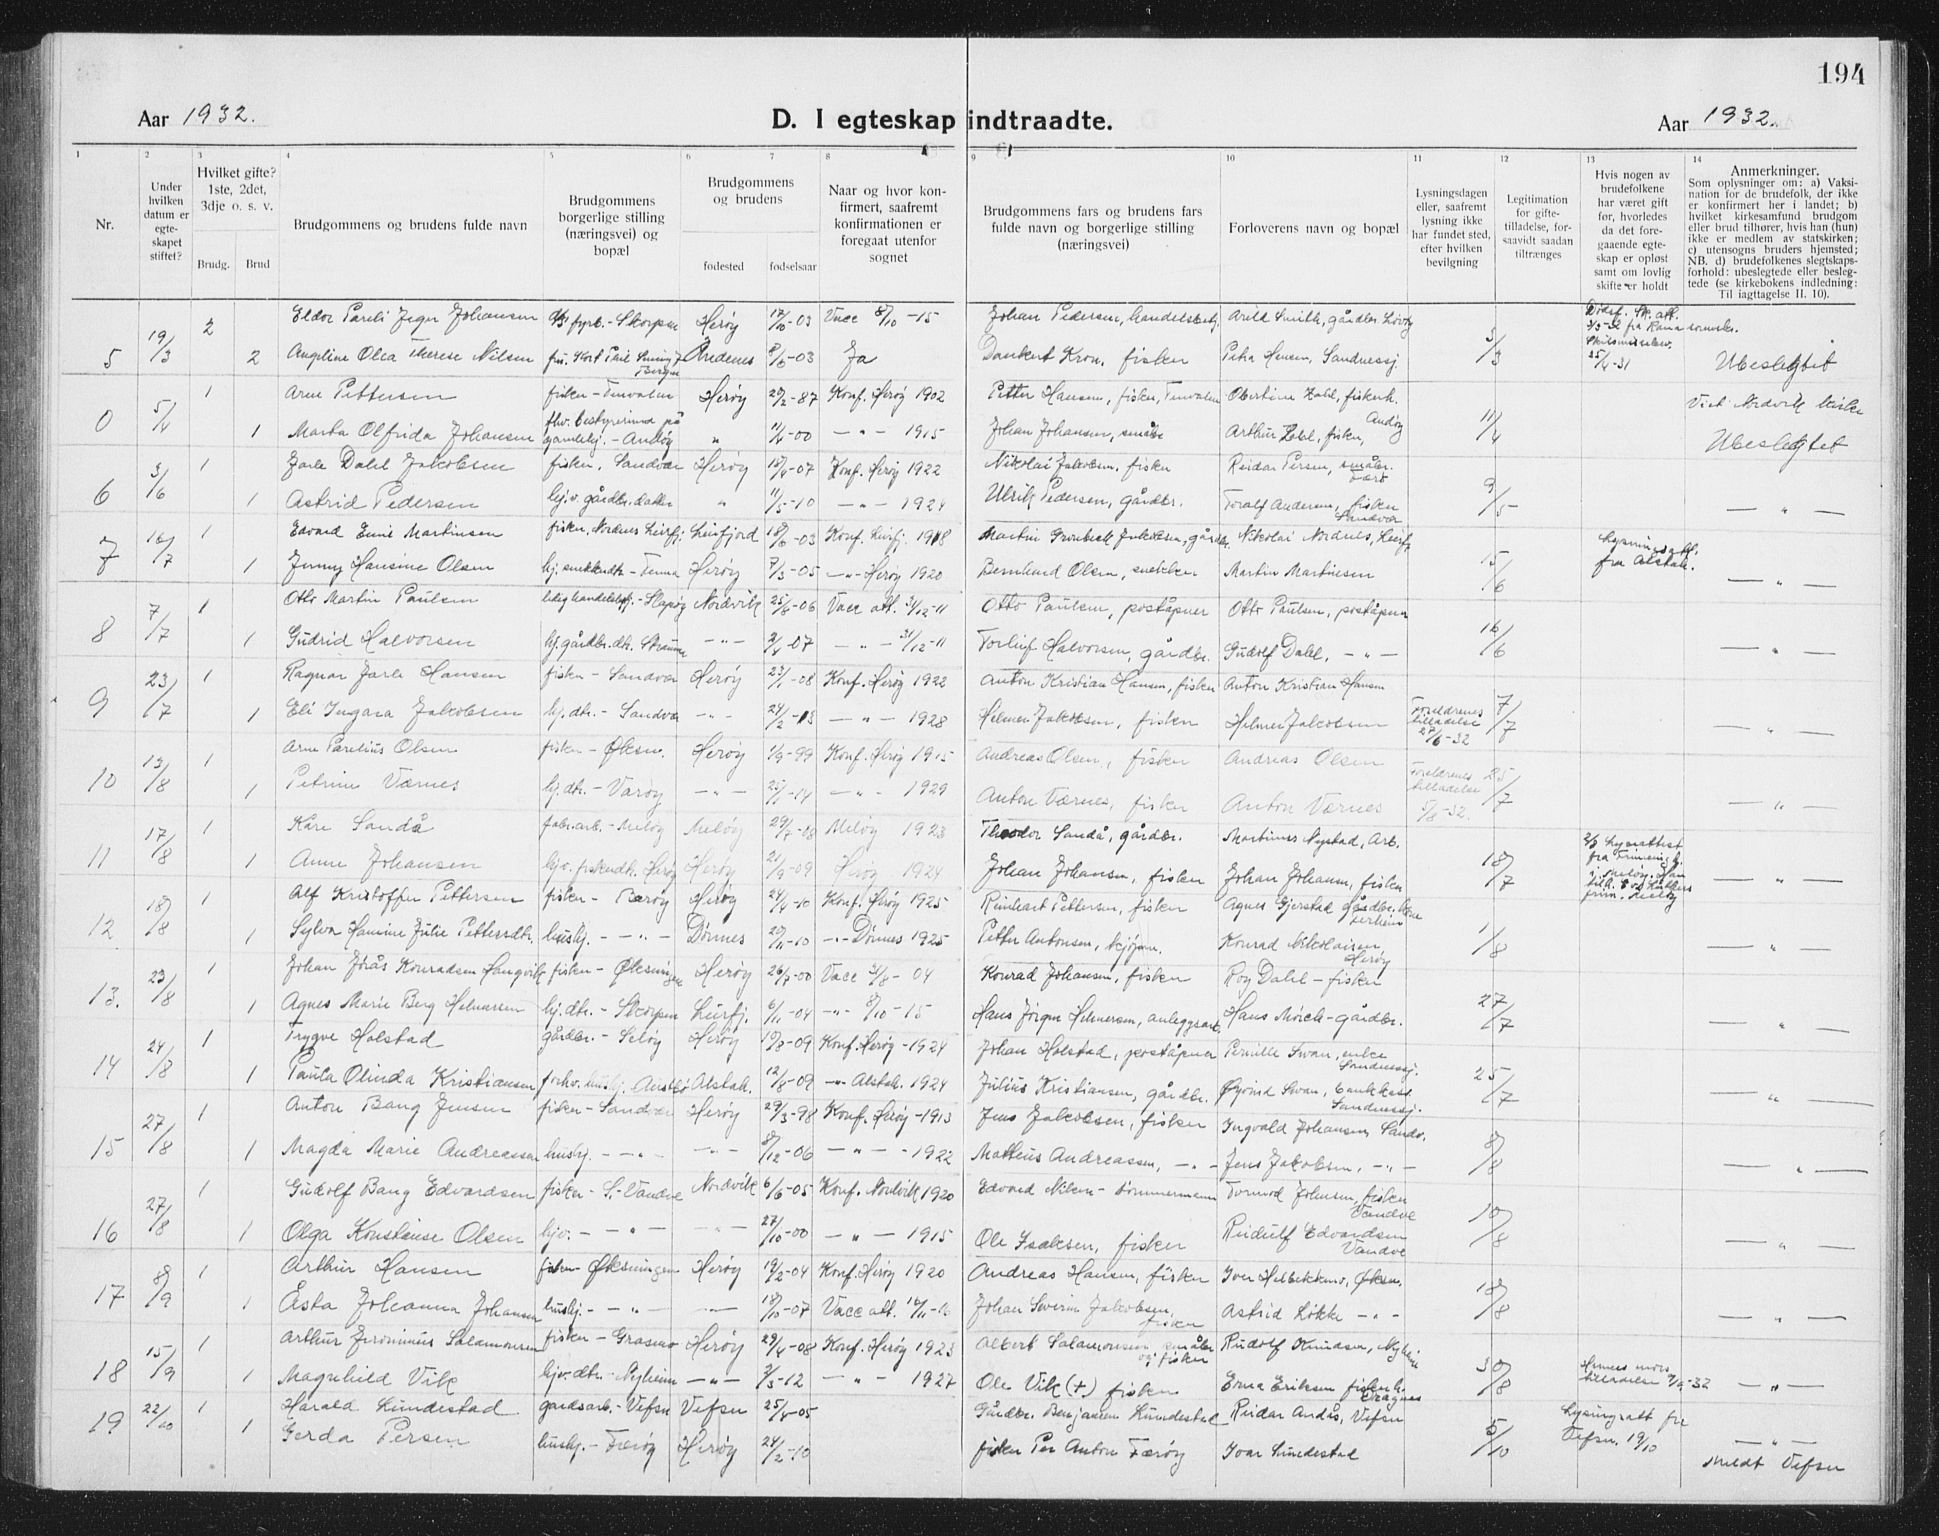 194
Aar 1932.
D. I egteskap indtraadte.
Aar 1932.
1 2 3 4 5 6 7 8 9 10 11 12 13 14
Nr.
Under hvilken datum er egte-skapet stiftet?
Hvilket gifte? 1ste, 2det, 3dje o. s. v.
Brudg. Brud
Brudgommens og brudens fulde navn
Brudgommens borgerlige stilling (næringsvei) og bopæl
Brudgommens og brudens
fødested fødselsaar
Naar og hvor kon-firmert, saafremt konfirmationen er foregaat utenfor sognet
Brudgommens fars og brudens fars fulde navn og borgerlige stilling (næringsvei)
Forloverens navn og bopæl
Lysningsdagen eller, saafremt lysning ikke har fundet sted, efter hvilken bevilgning
Legitimation for gifte-tilladelse, for-saavidt saadan tiltrænges
Hvis nogen av brudefolkene har været gift før, hvorledes da det fore-gaaende egte-skap er opløst samt om lovlig skifte er holdt
Anmerkninger.
Som oplysninger om: a) Vaksi-nation for de brudefolk, der ikke er konfirmert her i landet; b) hvilket kirkesamfund brudgom eller brud tilhører, hvis han (hun) ikke er medlem av statskirken; c) utensogns bruders hjemsted; NB. d) brudefolkenes slegtskaps-forhold: ubeslegtede eller besleg-tede (se kirkebokens indledning: Til iagttagelse II. 10).
2 Johansen Herøy 17/10-03 Vacc 8/10-15 Johan Pedersen, Arild Smith, gårdbr.
5 19/3 2 Angeline Olea Therese Nilsen 8/6-03 Ja Dankert Kron, fisker Petra Hansen, Sandnessj. 3/3 25/4-31 Ubeslegtet
1 Arne Pettersen fisker - Tenvalen Herøy 20/2-87 Konf. Herøy 1902 Petter Hansen, fisker, Tenvalen Viet Nordvik kirke
0 5/4 1 Marta Olfrida Johansen - Andøy " 11/4-00 - " - 1915 Johan Johansen, Arthur Zahl, fisker, Andøy 11/4 Ubeslegtet
1 Jarle Dahl Jakobsen fisker, Sandvær Herøy 15/4-07 Konf. Herøy 1922 Nikolai Jakobsen, fisker Reidar Persen, småbr.
6 3/6 1 Astrid Pedersen hjv. gårdbr. datter " 11/5-10 - " - 1924 Ulrik Pedersen, gårdbr. Toralf Andersen, fisker Sandvær 9/5 - " -
1 Edvard Emil Martinsen fisker, Nordnes Leirfj. Leirfjord 18/6-03 Konf. Leirfj. 1918 Martin Jakobsen, gårdbr. Nikolai Nordnes, Leirfj.
7 16/7 1 Jenny Hansine Olsen hj. snekkerdtr. - Tenna Herøy 7/3-05 - " - Herøy 1920 Bernhard Olsen, snekker Martin Martinsen 15/6 Lysningsatt. fra Alstah. - " -
1 Otto Martin Paulsen - Slapøy Nordvik 25/8-06 Vacc att. 31/12-11 Otto Paulsen, poståpner Otto Paulsen, poståpner
8 7/7 1 Gudrid Halvorsen hj. gårdbr. dtr. - " - 2/4-07 - " - 31/12-11 Torleif Halvorsen, gårdbr. Gudolf Dahl, - " - 16/6 - " -
1 Ragnar Jarle Hansen fisker - Sandvær Herøy 23/1-08 Konf. Herøy 1922 Anton Kristian Hansen, fisker Anton Kristian Hansen
9 23/7 1 Eli Ingara Jakobsen hj. dtr. - Sandvær - " - 24/2-13 - " - 1928 Helmer Jakobsen, fisker Helmer Jakobsen Foreldrenes tilladelse 27/6-32 7/7 - " -
1 Arne Parelius Olsen fisker - Øksn. Herøy 1/9-99 Konf. Herøy 1915 Andreas Olsen, fisker Andreas Olsen
10 13/8 1 Petrine Værnes hj. dtr. - Varøy - " - 25/1-14 - " - 1929 Anton Værnes, fisker Anton Værnes Foreldrenes tilladelse 5/8-32. 25/7 - " -
1 Kåre Sandå fabr. arb. - Meløy Meløy 29/7-08 Meløy 1923 Theodor Sandå, gårdbr. Martinus Nystad, Arb.
11 17/8 1 Anne Johansen hjv. fiskerdtr. Herøy Herøy 21/9-09 Herøy 1924 Johan Johansen, fisker Johan Johansen, fisker 18/7 - " -
1 Alf Kristoffer Pettersen fisker - Herøy 24/4-10 Konf. Herøy 1925 Reinhart Pettersen, fisker Agnes Gjerstad
12 18/8 1 Sylva Hanine Julie Pettersdtr. hushj. - " - Dønnes 20/11-10 - " - Dønnes 1925 Petter Antonsen, Konrad Nikolaisen, Herøy 1/8 - " -
1 Johan Konradsen fisker - Øksningen Herøy 26/7-00 Vacc 31/8-04 Konrad Johansen, fisker Roy Dahl - fisker
13. 23/8 1 Agnes Marie Berg Helmersen hj. dtr. - Skorpen Leirfj. 6/11-04 - " - 8/10-15 Hans Jörgen Helmersen, anleggsarb. Hans Mörch - gårdbr. 27/7 - " -
1 Trygve Holstad gårdbr. - Seløy Herøy 19/8-09 Konf. Herøy - 1924 Johan Holstad, poståpner Pernille Swan, enke Sandnessj.
14 24/8 1 Paula Olinda Kristiansen Alstah. 12/8-09 - " - Alstah. 1924 Julius Kristiansen, gårdbr. Øyvind Swan, bankkass. Sandnessj. 25/7 - " -
1 Anton Bang Jensen fisker - Sandvær Herøy 29/3-98 Konf. Herøy - 1913 Jens Jakobsen, fisker Ingvald Johansen, Sandv.
15 27/8 1 Magda Marie Andreassen hushj. - " - - " - 8/12-06 - " - 1922 Matteus Andreassen, - " - Jens Jakobsen, - " - 8/8 - " -
1 Gudolf Bang Edvardsen fisker - S.-Vandve Nordvik 6/6-05 Konf. Nordvik 1920 Edvard Nilsen - tömmermann Tormod Johnsen, fisker Vandve
16 27/8 1 Olga Konstanse Olsen hjv. - " - - " - 27/10-00 - " - 1915 Ole Isaksen, fisker Rudolf Edvardsen Vandve 10/8 - " -
1 Arthur Hansen fisker Øksningen Herøy 19/2-04 Konf. Herøy 1920 Andreas Hansen, fisker Øksn.
17 8/9 1 Åsta Johanna Johansen hushj. - " - - " - 18/10-07 Vacc att. Johan Severin Jakobsen, fisker Astrid Løkke - " - 18/8 - " -
1 Arthur Jeronimus Salamonsen fisker - Herøy 29/4-08 Konf. Herøy 1923 Albert Salamonsen småbr. og fisker Rudolf Knudsen, Nyheim
18 15/9 1 Magnhild Vik hjv. dtr. - Nyheim - " - 2/3-12 - " - 1927 Ole Vik (+) fisker Erna Eriksen 30/8 - " -
1 Harald Lundestad gårdsarb. - Vefsn Vefsn 25/4-05 Gårdbr. Benjamin Lundestad Reidar Andås, Vefsn
19 22/10 1 Gerda Persen hushj. - Færøy Herøy 24/2-10 fisker Per Anton Færøy Ivar Lundestad 5/10 Lysingsatt fra Vefsn. 19/10 - " -
Meldt Vefsn